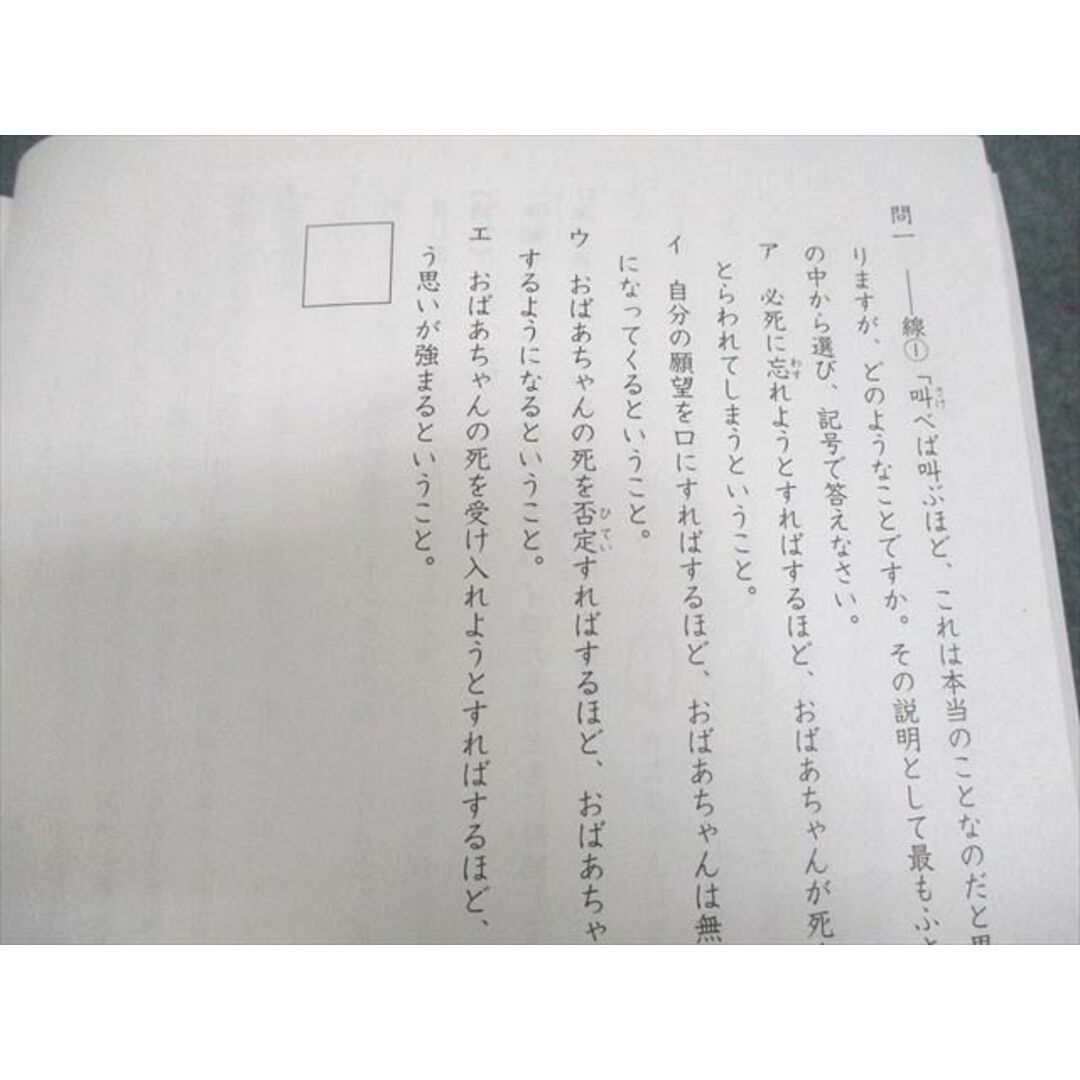 問一 ――線①「叫べば叫ぶほど、これは本当のことなのだと思
りますが、どのようなことですか。その説明として最もふ
の中から選び、記号で答えなさい。
ア 必死に忘れようとすればするほど、おばあちゃんが死
とらわれてしまうということ。
イ 自分の願望を口にすればするほど、おばあちゃんは無
になってくるということ。
ウ おばあちゃんの死を否定すればするほど、おばあちゃ
するようになるということ。
エ おばあちゃんの死を受け入れようとすればするほど、
う思いが強まるということ。